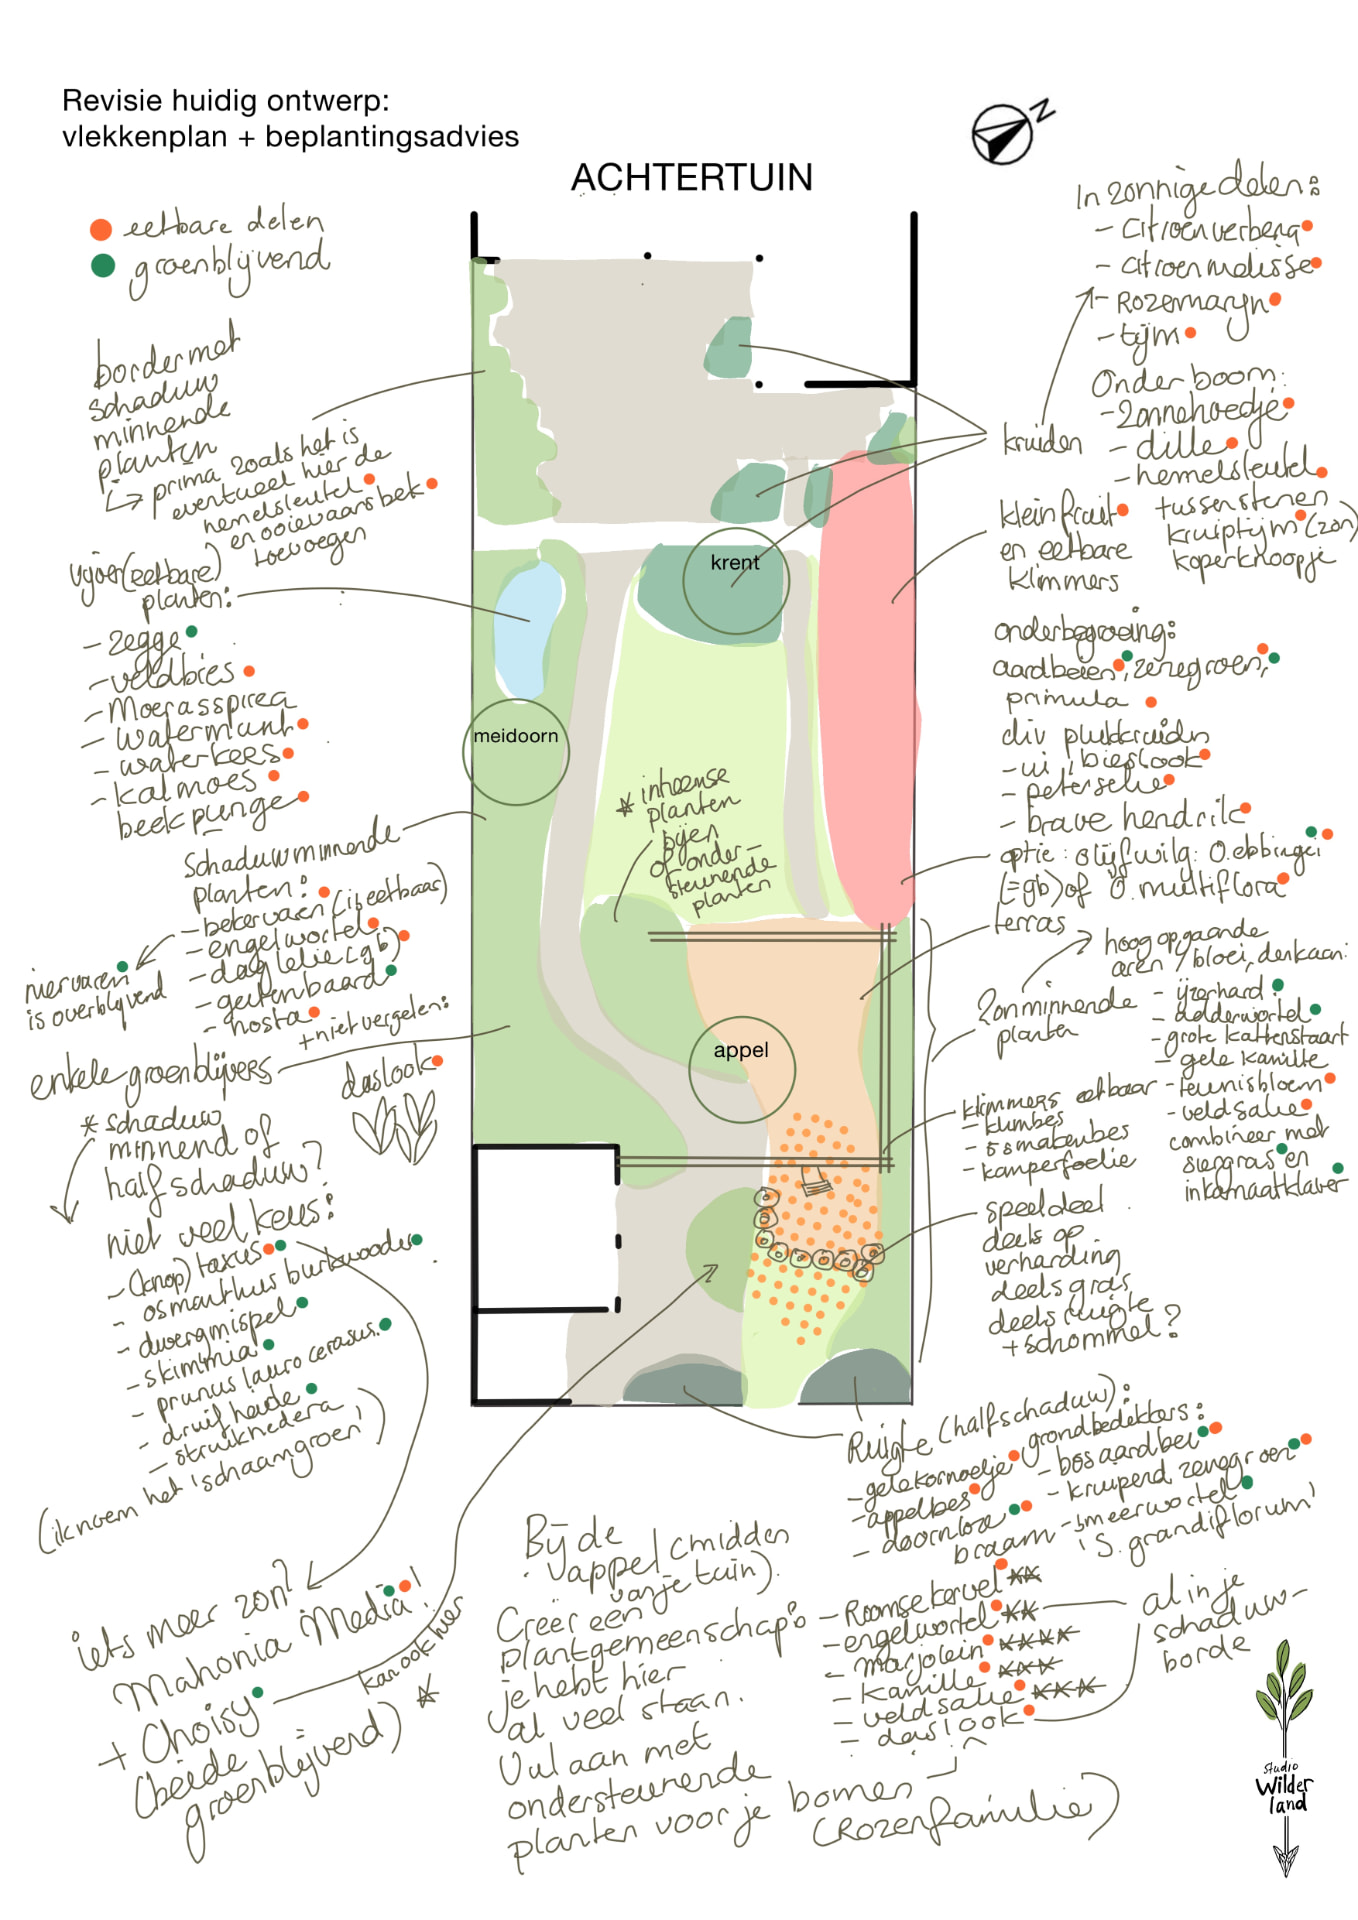 Revisie huidig ontwerp:
vlekkenplan + beplantingsadvies
N
ACHTERTUIN
eetbare delen
groenblijvend
border met
schaduw
minnende
planten
prima zoals het is
eventueel hier de
hemelsleutel
en ooievaarsbek
toevoegen
vijver (eetbare)
planten:
- zegge
- veldbies
- Moerasspirea
- watermunt
- waterkers
- kalmoes
beekpunge
Schaduwminnende
planten:
- bekervaren (is eetbaar)
- engelwortel
- daglelie (gb)
- geitenbaard
- hosta
+ niet vergelen:
daslook
niervaren
is overblijvend
enkele groenblijvers
* schaduw
minnend of
halfschaduw?
niet veel keus:
- (knop) taxus
- osmanthus burkwoodii
- dwergmispel
- skimmia
- prunus lauro cerasus.
- druifheide
- struikhedera
(ik noem het 'schaamgroen')
iets meer zon?
Mahonia Media!
+ Choisy
(beide
groenblijvend)
kan ook hier
*
krent
meidoorn
* inheemse
planten
bijen
of onder-
steunende
planten
appel
In zonnige delen:
- Citroenverbena
- citroenmelisse
- Rozemaryn
- tijm
Onder boom:
- zonnehoedje
- dille
- hemelsleutel
tussen stenen
kruiptijm (zon)
koperknoopje
kruiden
klein fruit
en eetbare
klimmers
onderbegroeiing:
aardbeien, zenegroen,
primula
div plukkruiden
- ui, bieslook
- peterselie
- brave hendrik
optie: olijfwilg: O. ebbingei
(=gb) of O. multiflora
terras
hoog opgaande
aren / bloei, denk aan:
zonminnende
planten
- ijzerhard
- adderwortel
- grote kattenstaart
- gele kamille
- teunisbloem
- veldsalie
combineer met
siergras en
inkarnaatklaver
klimmers eetbaar
- klimbes
- 5smakenbes
- kamperfoelie
speeldeel
deels op
verharding
deels gras
deels ruigte
+ schommel?
Ruigte (halfschaduw):
- gele kornoelje
- appelbes
- doornloze
braam
grondbedekkers:
- bosaardbei
- kruipend zenegroen
- smeerwortel
'S. grandiflorum'
Bij de
appel (midden
van je tuin).
Creëer een
plantgemeenschap:
je hebt hier
al veel staan.
Vul aan met
ondersteunende
planten voor je bomen
(Rozenfamilie)
- Roomse kervel
- engelwortel
- marjolein
- kamille
- veldsalie
- daslook
al in je
schaduw-
borde
studio
Wilder
land